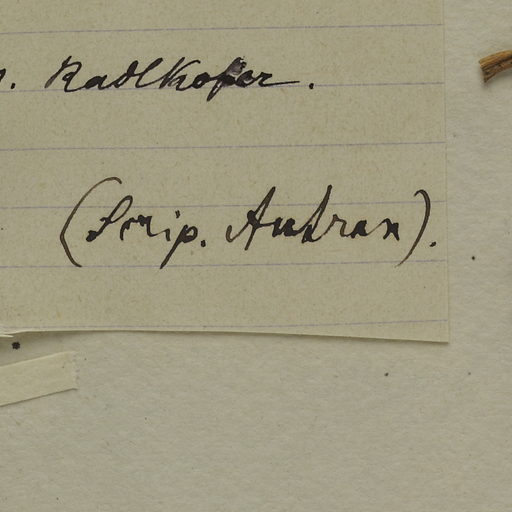 . Radlkofer.
(Scrip. Autran).